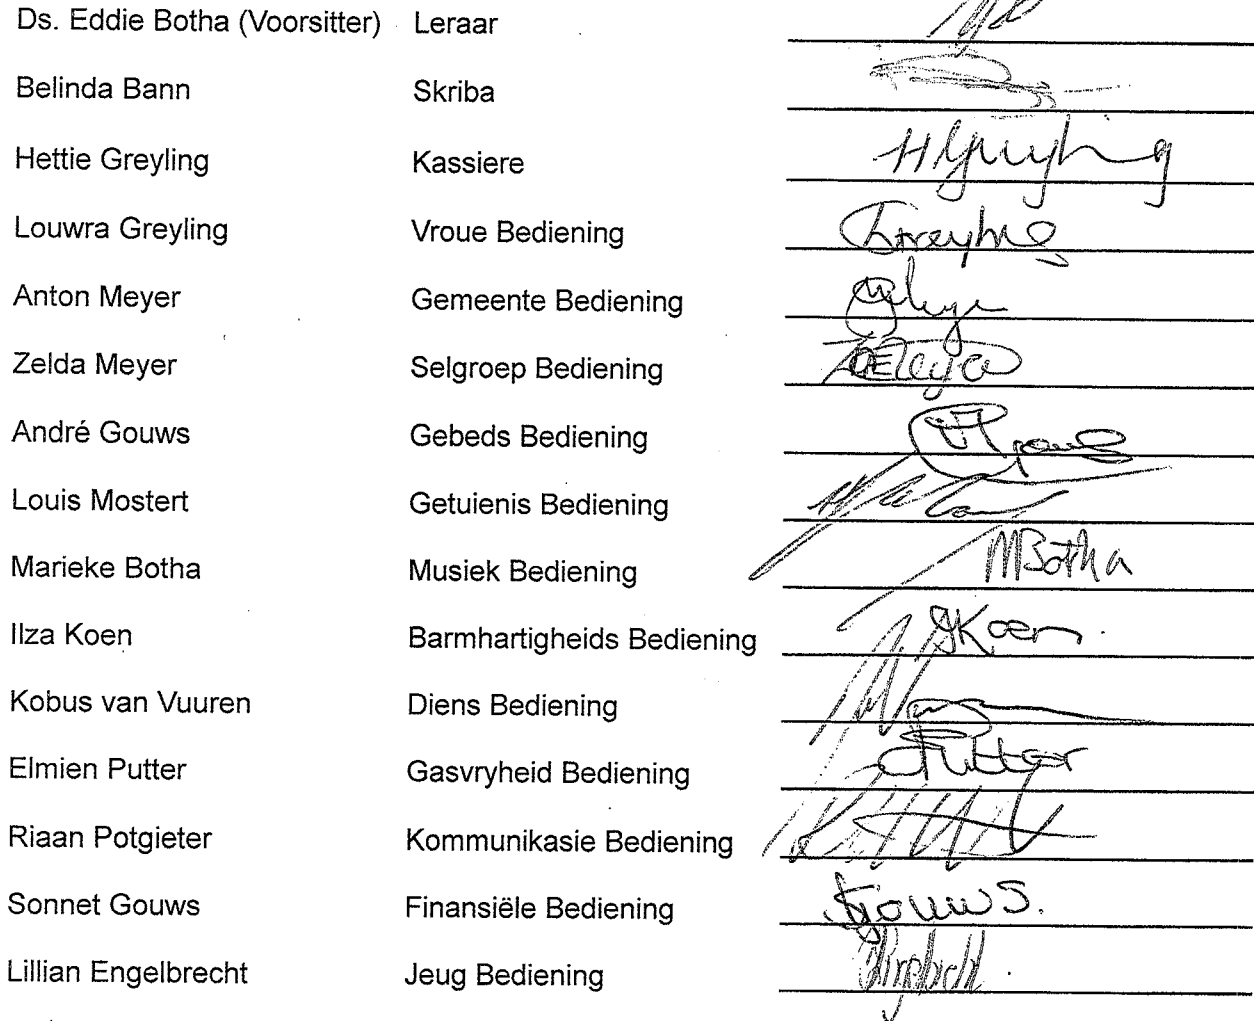 Ds. Eddie Botha (Voorsitter) Leraar
Belinda Bann Skriba
Hettie Greyling Kassiere HGreyling
Louwra Greyling Vroue Bediening Greyling
Anton Meyer Gemeente Bediening
Zelda Meyer Selgroep Bediening
André Gouws Gebeds Bediening
Louis Mostert Getuienis Bediening
Marieke Botha Musiek Bediening MBotha
Ilza Koen Barmhartigheids Bediening Koen
Kobus van Vuuren Diens Bediening
Elmien Putter Gasvryheid Bediening Putter
Riaan Potgieter Kommunikasie Bediening
Sonnet Gouws Finansiële Bediening Gouws.
Lillian Engelbrecht Jeug Bediening